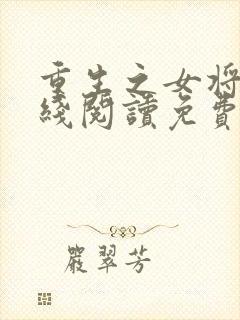 重生之女将
綫閱讀免費
嚴翠芳